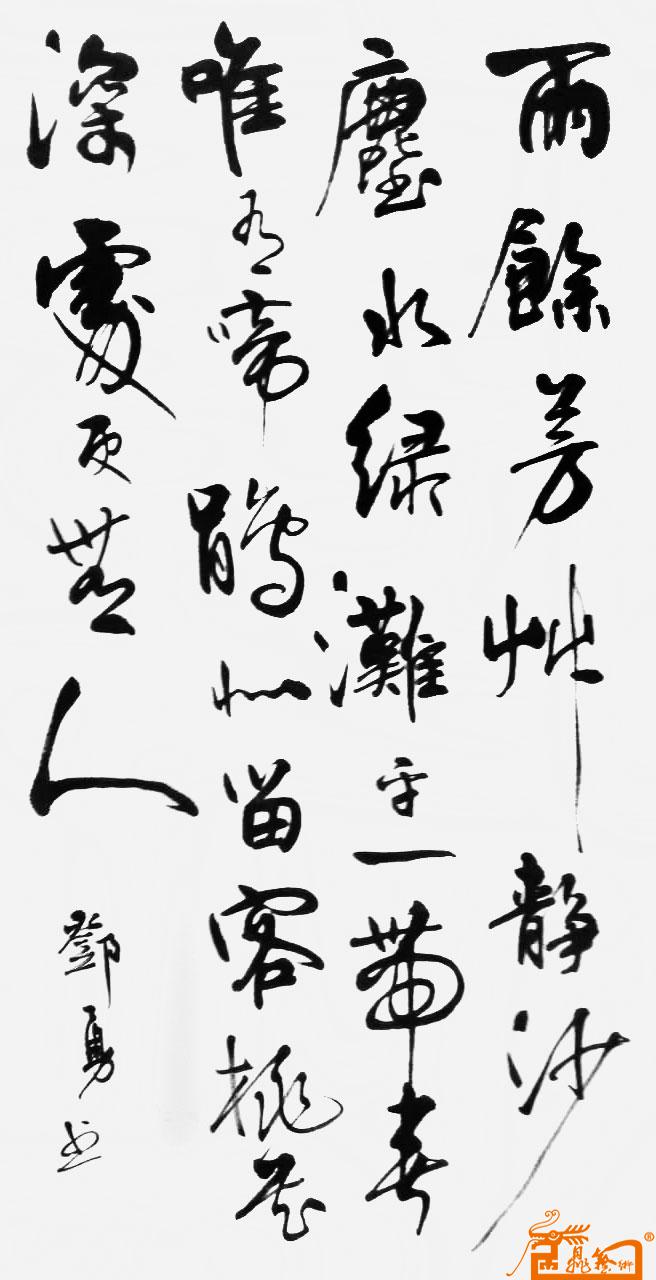 雨餘芳艸靜沙
塵水绿灘平一帶春
唯有啼鵑似留客桃花
深處更無人
鄧勇书